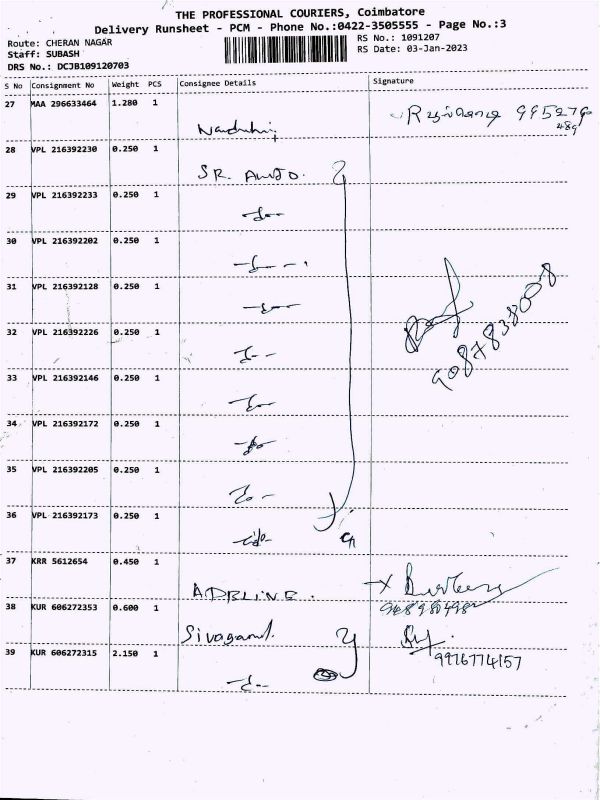 THE PROFESSIONAL COURIERS, Coimbatore
Delivery Runsheet - PCM - Phone No.:0422-3505555 - Page No.:3
Route: CHERAN NAGAR
RS No.: 1091207
Staff: SUBASH
RS Date: 03-Jan-2023
DRS No.: DCJB109120703
S No Consignment No Weight PCS Consignee Details Signature
27 MAA 296633464 1.280 1
28 VPL 216392230 0.250 1
SR. AUTO.
29 VPL 216392233 0.250 1
30 VPL 216392202 0.250 1
31 VPL 216392128 0.250 1
32 VPL 216392226 0.250 1
33 VPL 216392146 0.250 1
34 VPL 216392172 0.250 1
35 VPL 216392205 0.250 1
36 VPL 216392173 0.250 1
37 KRR 5612654 0.450 1
ADELINE.
38 KUR 606272353 0.600 1
39 KUR 606272315 2.150 1
9976774157